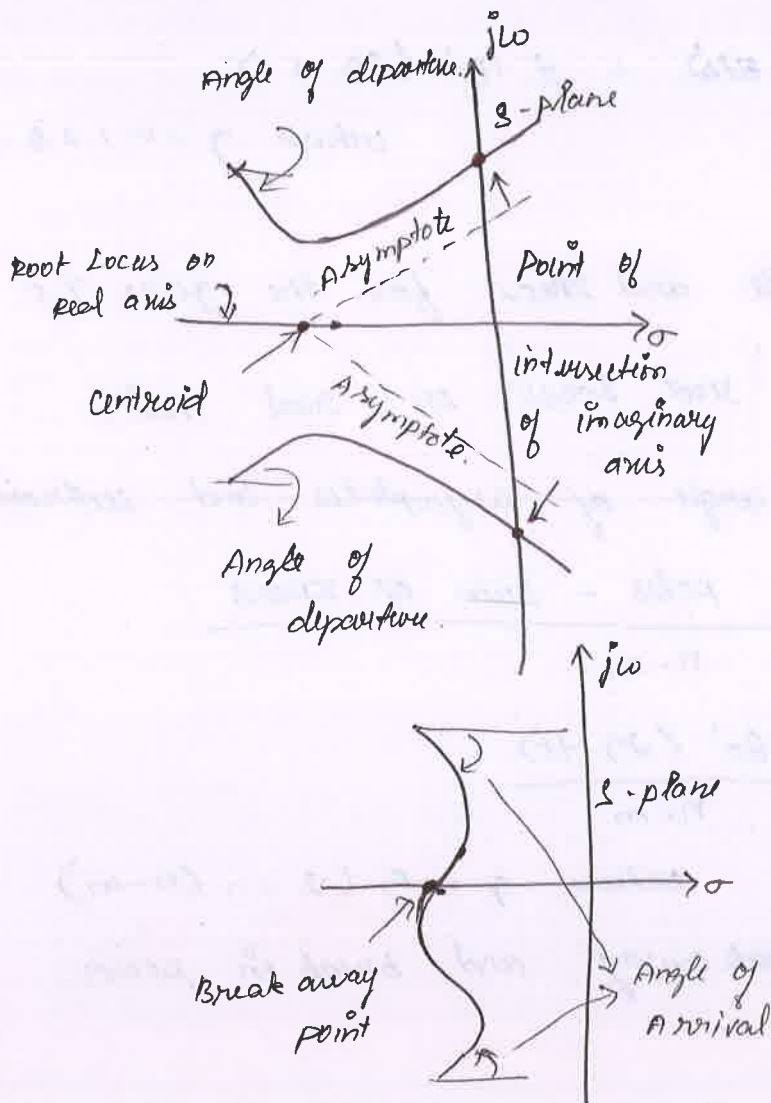 jω
Angle of departure.
S-plane
Asymptote
Root Locus on
Real axis
Point of
σ
intersection
of imaginary
axis
Centroid
Asymptote.
Angle of
departure.
jω
S-plane
σ
Break away
point
Angle of
Arrival